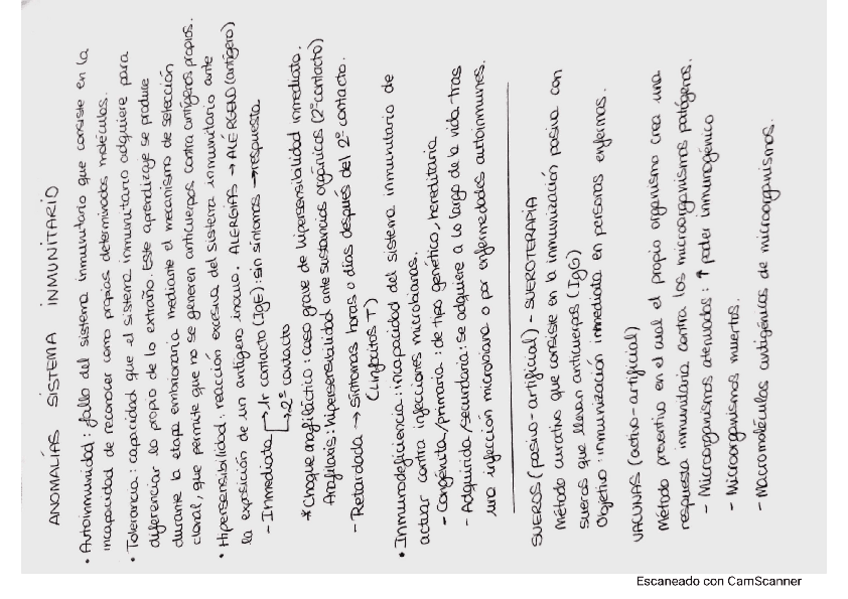 ANOMALÍAS SISTEMA INMUNITARIO
• Autoinmunidad: fallo del sistema inmunitario que consiste en la
incapacidad de reconocer como propias determinadas moléculas.
• Tolerancia: capacidad que el sistema inmunitario adquiere para
diferenciar lo propio de lo extraño. Este aprendizaje se produce
durante la etapa embrionaria mediante el mecanismo de selección
clonal, que permite que no se generen anticuerpos contra antígenos propios.
• Hipersensibilidad: reacción excesiva del sistema inmunitario ante
la exposición de un antígeno inocuo. ALERGIAS → ALÉRGENO (antígeno)
- Inmediata → 1r contacto (IgE): sin síntomas → respuesta
→ 2º contacto
* Choque anafiláctico: caso grave de hipersensibilidad inmediata.
Anafilaxis: hipersensibilidad ante sustancias orgánicas (2º contacto)
- Retardada → síntomas horas o días después del 2º contacto.
(Linfocitos T)
• Inmunodeficiencia: incapacidad del sistema inmunitario de
actuar contra infecciones microbianas.
- Congénita/primaria: de tipo genético, hereditaria
- Adquirida/secundaria: se adquiere a lo largo de la vida tras
una infección microbiana o por enfermedades autoinmunes.
SUEROS (pasiva-artificial) - SUEROTERAPIA
Método curativo que consiste en la inmunización pasiva con
sueros que llevan anticuerpos (IgG)
Objetivo: inmunización inmediata en personas enfermas.
VACUNAS (activa-artificial)
Método preventivo en el cual el propio organismo crea una
respuesta inmunitaria contra los microorganismos patógenos.
- Microorganismos atenuados: ↑ poder inmunogénico
- Microorganismos muertos.
- Macromoléculas antigénicas de microorganismos.
Escaneado con CamScanner